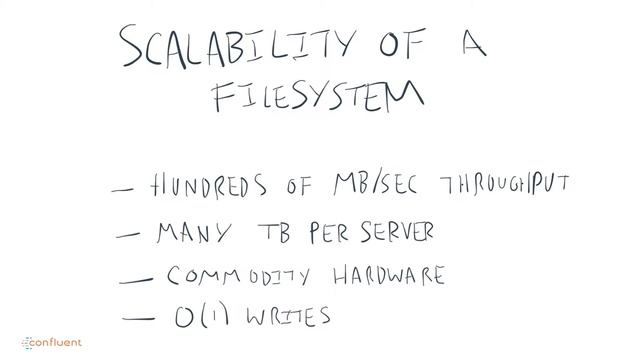 SCALABILITY OF A
FILESYSTEM
— HUNDREDS OF MB/SEC THROUGHPUT
— MANY TB PER SERVER
— COMMODITY HARDWARE
— O(1) WRITES
confluent